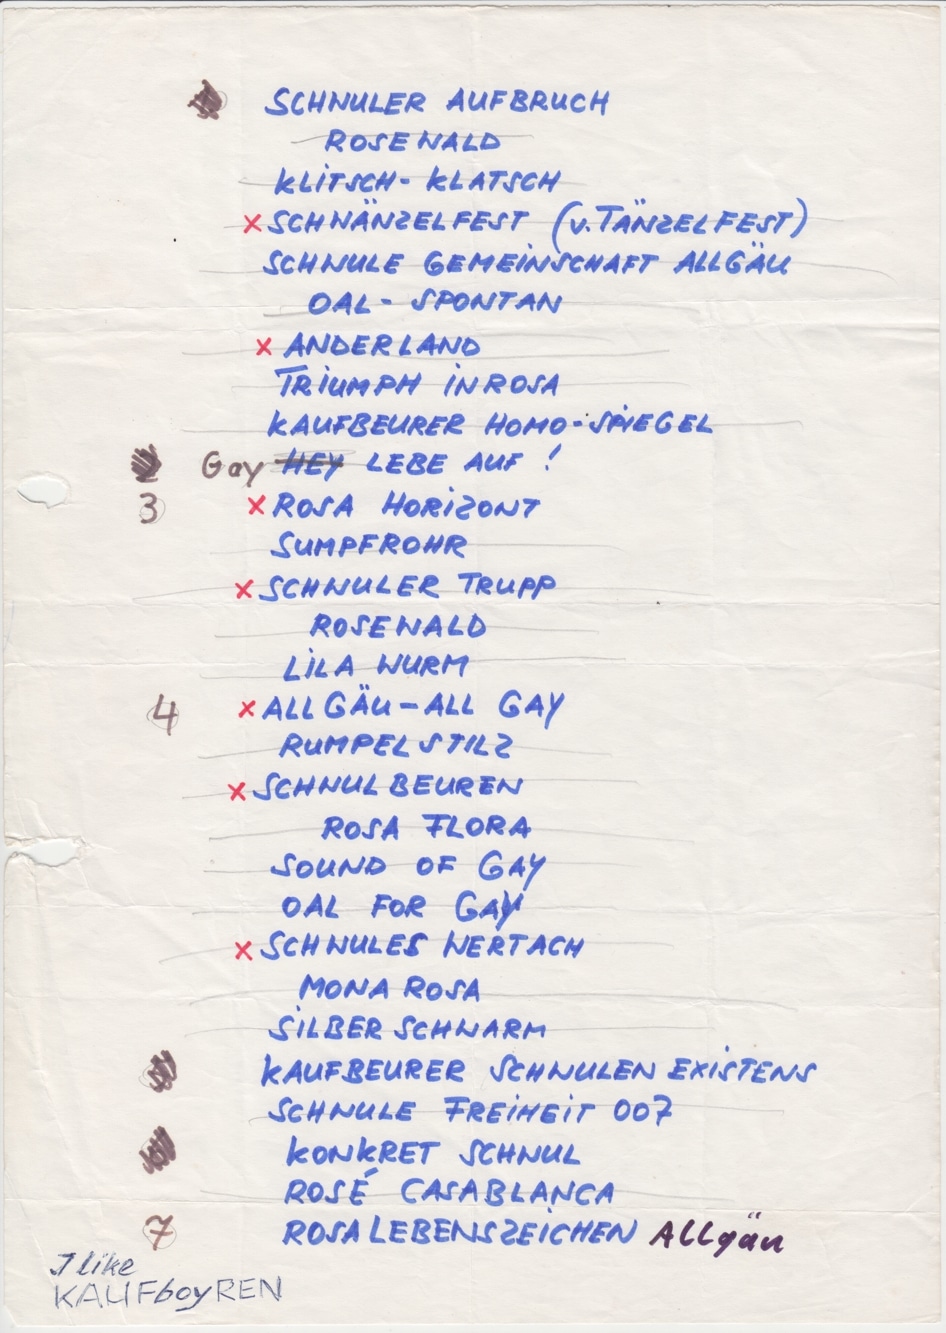 SCHWULER AUFBRUCH
ROSEWALD
KLITSCH-KLATSCH
x SCHWÄNZELFEST (v. TÄNZELFEST)
SCHWULE GEMEINSCHAFT ALLGÄU
OAL-SPONTAN
x ANDERLAND
TRIUMPH IN ROSA
KAUFBEURER HOMO-SPIEGEL
2 Gay HEY LEBE AUF !
3 x ROSA HORIZONT
SUMPFROHR
x SCHWULER TRUPP
ROSEWALD
LILA WURM
4 x ALLGÄU-ALL GAY
RUMPELSTILZ
x SCHWULBEUREN
ROSA FLORA
SOUND OF GAY
OAL FOR GAY
x SCHWULES WERTACH
MONA ROSA
SILBERSCHWARM
KAUFBEURER SCHWULEN EXISTENS
SCHWULE FREIHEIT 007
KONKRET SCHWUL
ROSÉ CASABLANCA
7 ROSA LEBENSZEICHEN ALLgäu
I like
KAUFboyREN